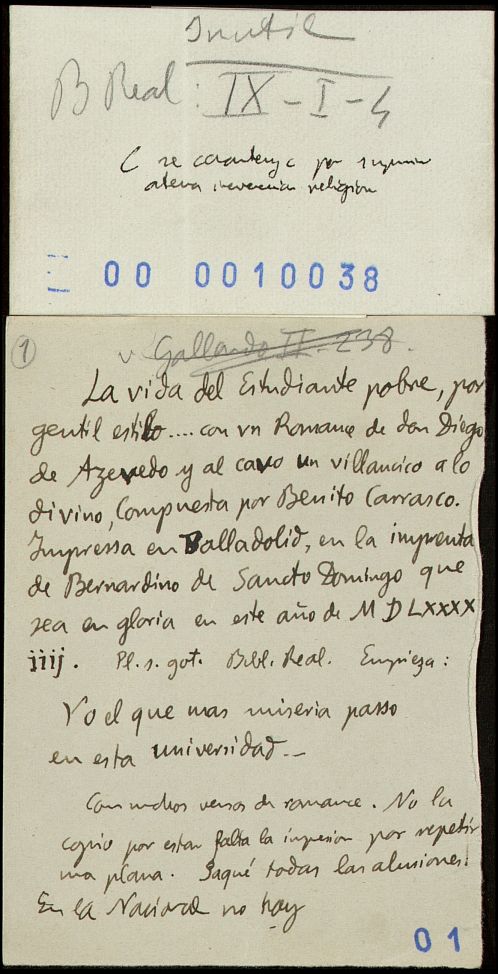 Inutil
B Real: IX-I-4
C se por
irreverencia religion
00 0010038
1
v Gallardo II-238.
La vida del Estudiante pobre, por
gentil estilo.... con vn Romance de don Diego
de Azevedo y al cavo un villancico a lo
divino, Compuesta por Benito Carrasco.
Impressa en Balladolid, en la imprenta
de Bernardino de Sancto Domingo que
sea en gloria en este año de M D LXXXX
iiij. Pl. s. got. Bibl. Real. Empieza:
Yo el que mas miseria passo
en esta universidad_
Con muchos versos de romance. No la
copio por estar falta la impresion por repetir
una plana. Saqué todas las alusiones.
En la Nacional no hay
01